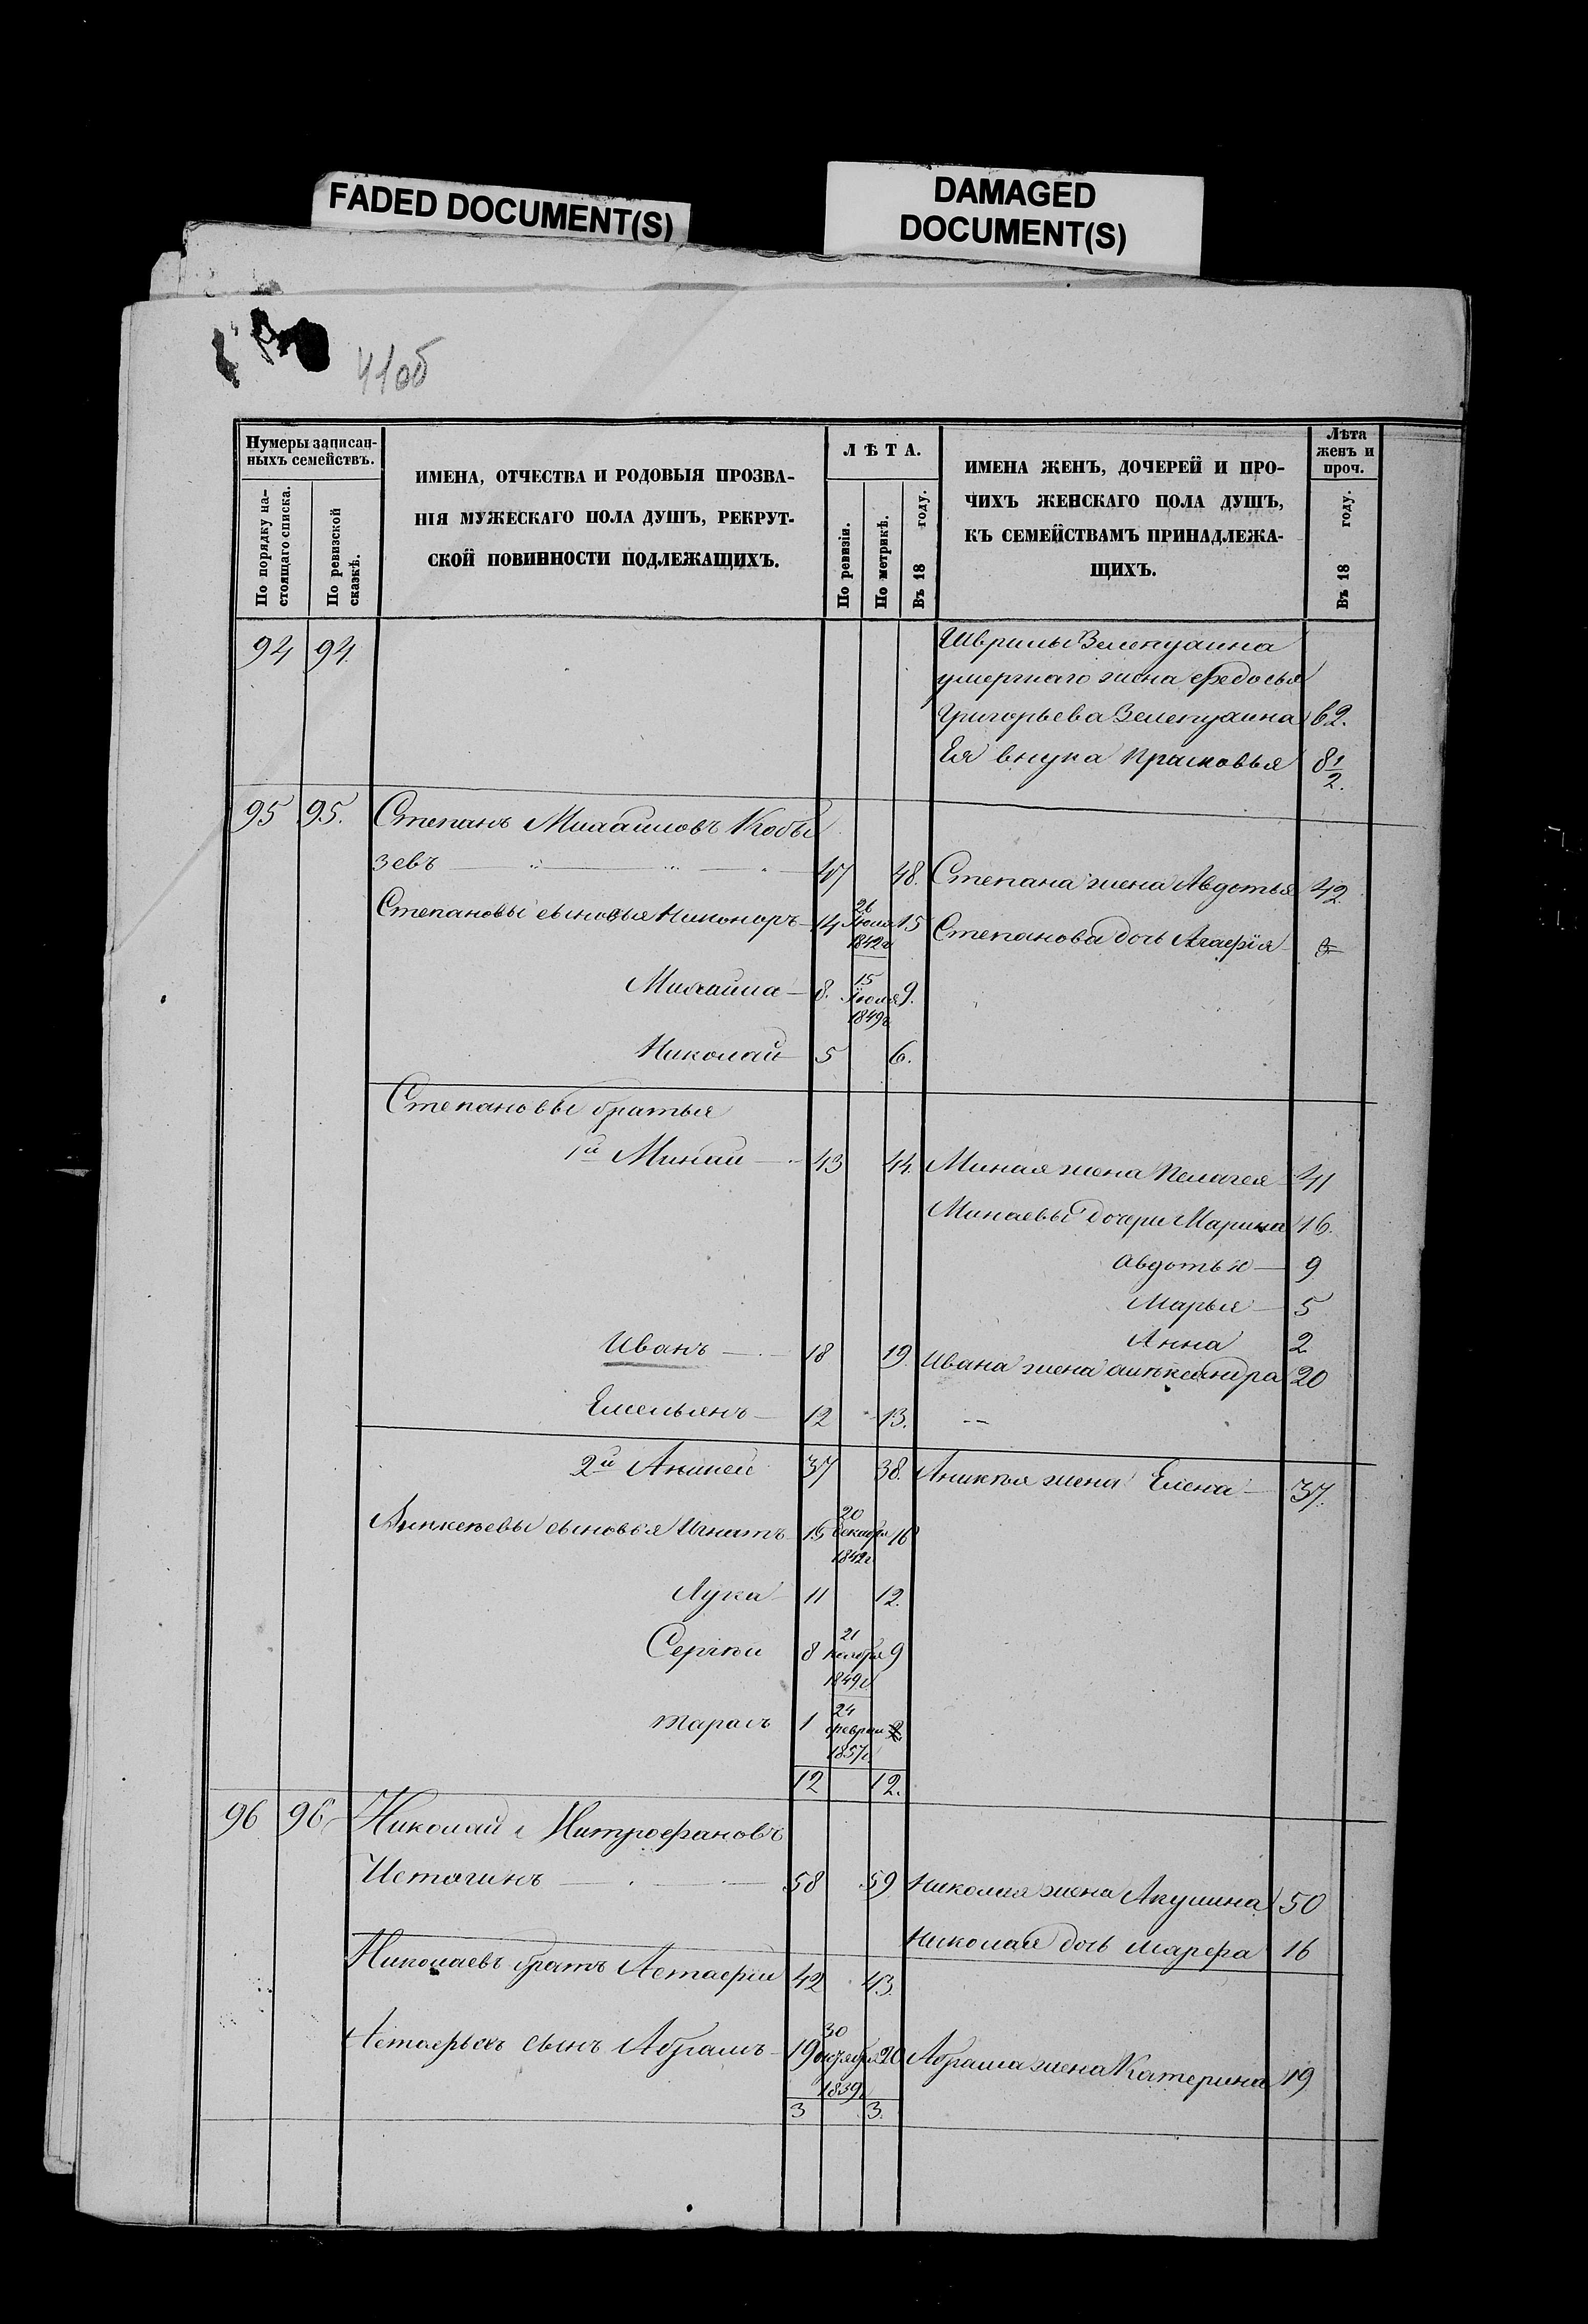 FADED DOCUMENT(S)
DAMAGED
DOCUMENT(S)
41об
Нумеры записан-
ныхъ семействъ.
По порядку на-
стоящаго списка.
По ревизской
сказкѣ.
ИМЕНА, ОТЧЕСТВА И РОДОВЫЯ ПРОЗВА-
НІЯ МУЖЕСКАГО ПОЛА ДУШЪ, РЕКРУТ-
СКОЙ ПОВИННОСТИ ПОДЛЕЖАЩИХЪ.
ЛѢТА.
По ревизіи.
По метрикѣ.
Въ 18 году.
ИМЕНА ЖЕНЪ, ДОЧЕРЕЙ И ПРО-
ЧИХЪ ЖЕНСКАГО ПОЛА ДУШЪ,
КЪ СЕМЕЙСТВАМЪ ПРИНАДЛЕЖА-
ЩИХЪ.
Лѣта
женъ и
проч.
Въ 18 году.
94 94.
умершаго жена Федосья
Григорьева Зелепухина 62.
Ея внука Прасковья 8 1/2.
95 95. Степанъ Михайловъ Кобы
зевъ 47 48. Степана жена Авдотья 42
Степановы сыновья Никоноръ 14 26 Іюля 1842г 15 Степанова дочь Агафія
Михайла 8. 15 Іюля 1849г 9.
Николай 5 6.
Степановы братья
1й Минай 43 44. Миная жена Пелагея 41
Минаевы дочери Марина 16.
Авдотья 9
Марья 5
Анна 2
Иванъ 18 19 Ивана жена Александра 20
Емельянъ 12 13.
2й Аникей 37 38. Аникея жена Елена 37.
Аникеевы сыновья Игнатъ 15 20 декабря 1842г 16
Лука 11 12.
Сергѣй 8 21 ноября 1849г 9
Тарасъ 1 24 феврал 1857г 2
12 12.
96 96 Николай Митрофановъ
Истогинъ 58 59 Николая жена Акулина 50
Николая дочь Марфа 16
Николаевъ братъ Астафій 42 43.
Астафьевъ сынъ Абрамъ 19 30 октября 1839г 20 Абрама жена Катерина 19
3 3.